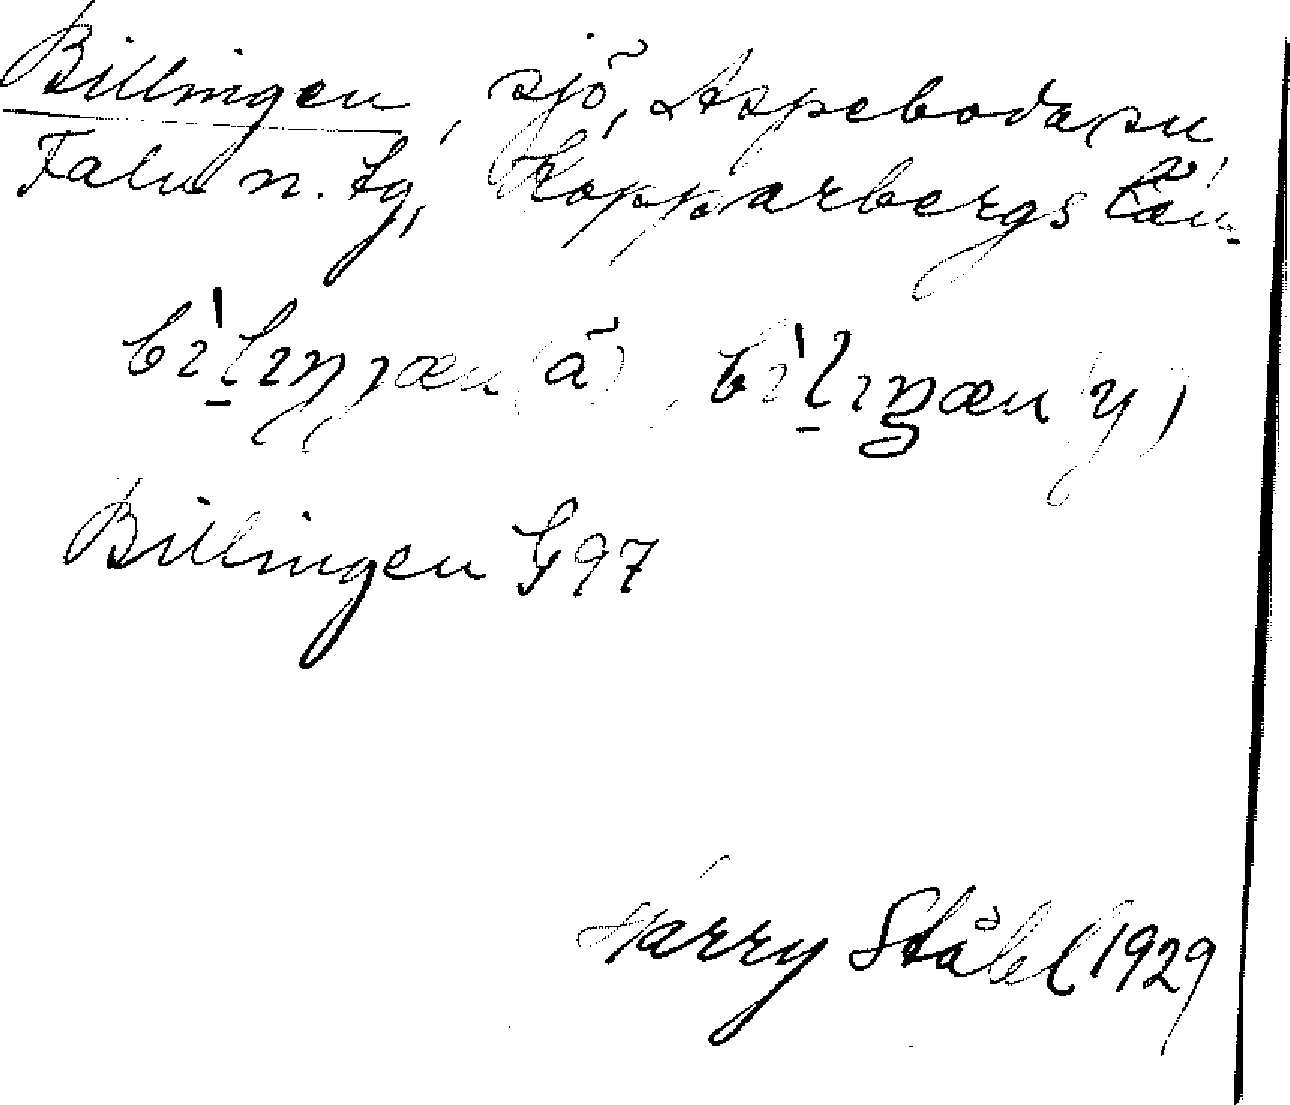 Billingen, sjö, Aspeboda sn,
Falu n. tg, Kopparbergs län.
bìl̠ıŋȷæn (ä), bìl̠ıŋæn (y)
Billingen G97
Harry Ståhl 1929